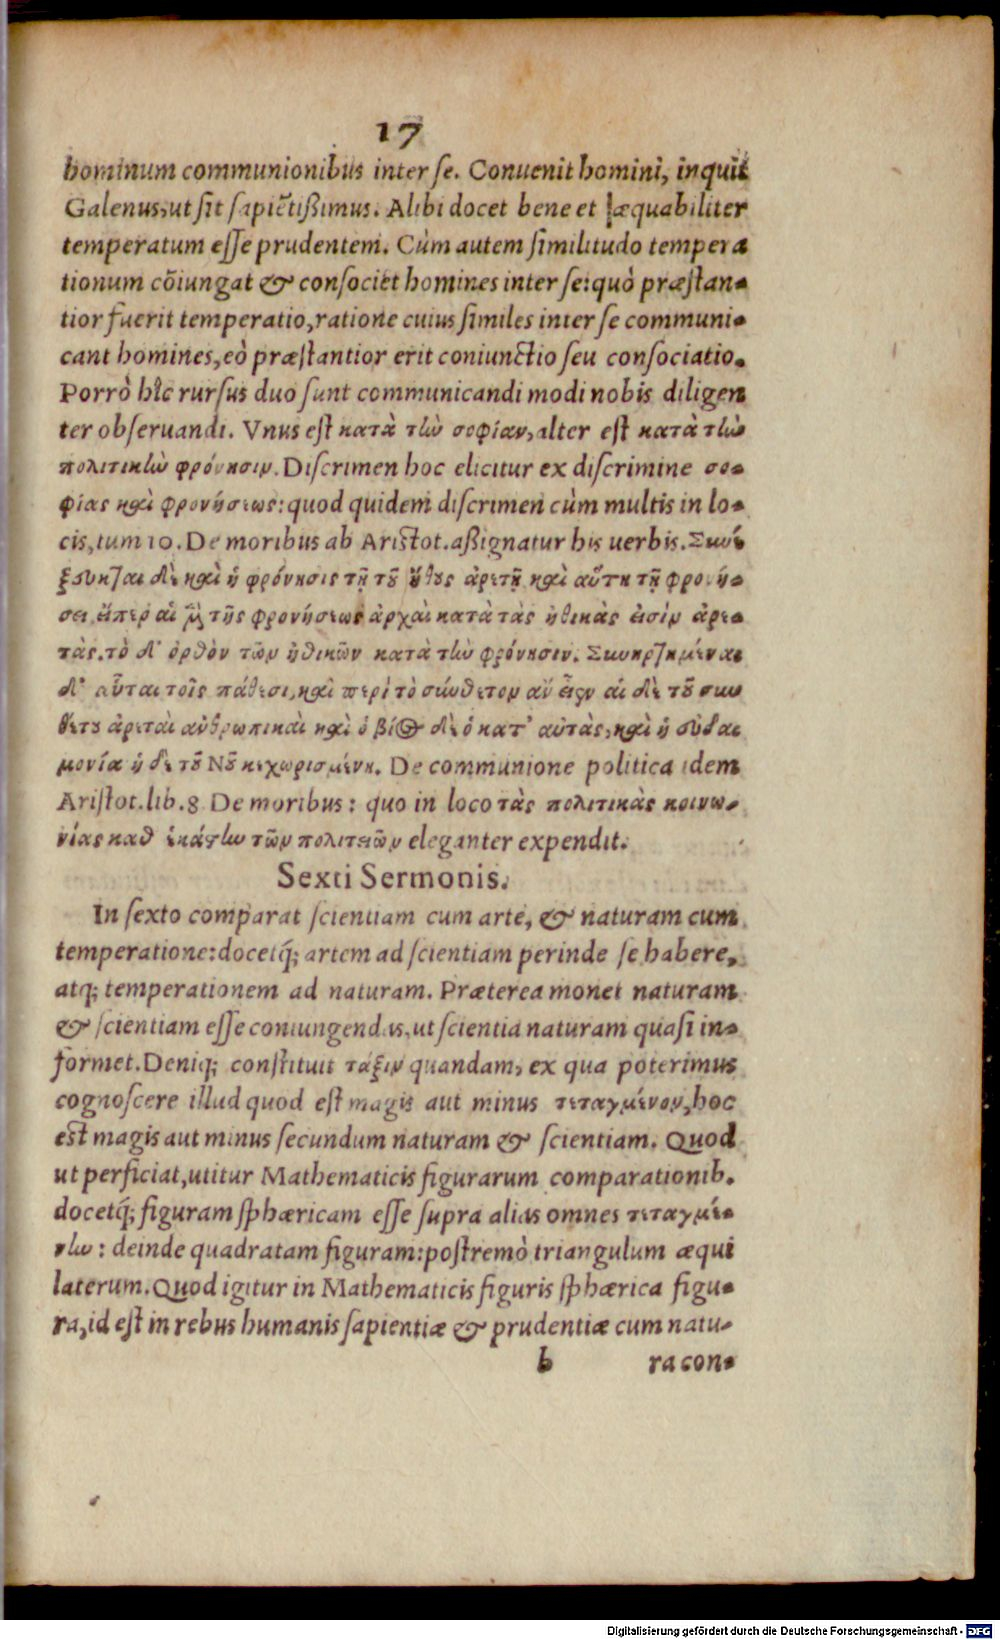 17
hominum communionibus inter se. Conuenit homini, inquit
Galenus, ut sit sapiẽtißimus. Alibi docet bene et æquabiliter
temperatum esse prudentem. Cùm autem similitudo tempera
tionum cõiungat & consociet homines inter se: quò præstan-
tior fuerit temperatio, ratione cuius similes inter se communi-
cant homines, eò præstantior erit coniunctio seu consociatio.
Porrò hîc rursus duo sunt communicandi modi nobis diligen
ter obseruandi. Vnus est κατὰ τὴν σοφίαν, alter est κατὰ τὴν
πολιτικὴν φρόνησιν. Discrimen hoc elicitur ex discrimine σο-
φίας καὶ φρονήσεως: quod quidem discrimen cùm multis in lo-
cis, tum 10. De moribus ab Aristot. aßignatur his uerbis. Συνέ-
ζευκται δὲ καὶ ἡ φρόνησις τῇ τοῦ ἤθους ἀρετῇ καὶ αὕτη τῇ φρονή-
σει, εἴπερ αἱ μὲν τῆς φρονήσεως ἀρχαὶ κατὰ τὰς ἠθικάς εἰσὶν ἀρε-
τὰς. τὸ δ' ὀρθὸν τῶν ἠθικῶν κατὰ τὴν φρόνησιν. Συνηρτημέναι
δ' αὗται τοῖς πάθεσι, καὶ περὶ τὸ σύνθετον ἂν εἶεν αἱ δὲ τοῦ συν
θέτου ἀρεταὶ ἀνθρωπικαὶ καὶ ὁ βίος δὲ ὁ κατ' αὐτὰς, καὶ ἡ εὐδαι
μονία ἡ δὲ τοῦ Νοῦ κεχωρισμένη. De communione politica idem
Aristot. lib. 8 De moribus: quo in loco τὰς πολιτικὰς κοινω-
νίας καθ ἑκάστην τῶν πολιτειῶν eleganter expendit.
Sexti Sermonis.
In sexto comparat scientiam cum arte, & naturam cum
temperatione: docetq́; artem ad scientiam perinde se habere,
atq; temperationem ad naturam. Præterea monet naturam
& scientiam esse coniungendas, ut scientia naturam quasi in-
formet. Deniq; constituit τάξιν quandam, ex qua poterimus
cognoscere illud quod est magis aut minus τεταγμένον, hoc
est magis aut minus secundum naturam & scientiam. Quod
ut perficiat, utitur Mathematicis figurarum comparationib.
docetq́; figuram sphæricam esse supra alias omnes τεταγμέ-
νην: deinde quadratam figuram: postremò triangulum æqui
laterum. Quod igitur in Mathematicis figuris sphærica figu-
ra, id est in rebus humanis sapientiæ & prudentiæ cum natu-
b racon-
Digitalisierung gefördert durch die Deutsche Forschungsgemeinschaft - DFG